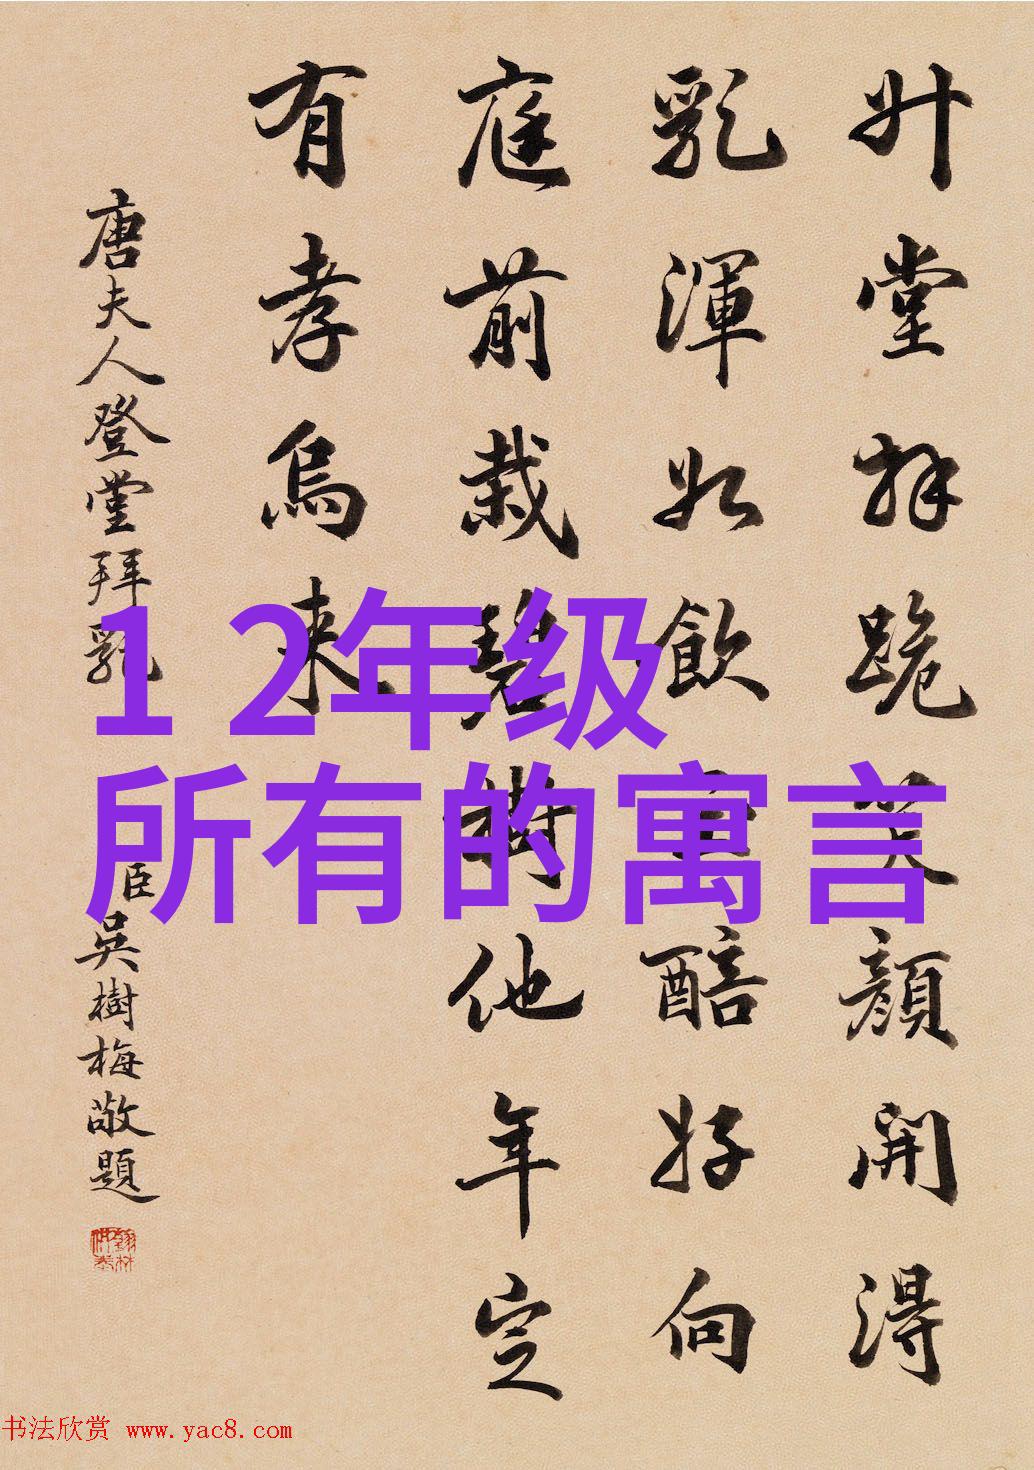 1 2年级
所有的寓言
升堂拜跪笑顏開得
乳渾如飲醅好向
庭前栽碧樹他年定
有孝烏来
唐夫人登堂拜乳
臣吳樹梅敬題
书法欣赏 www.yac8.com